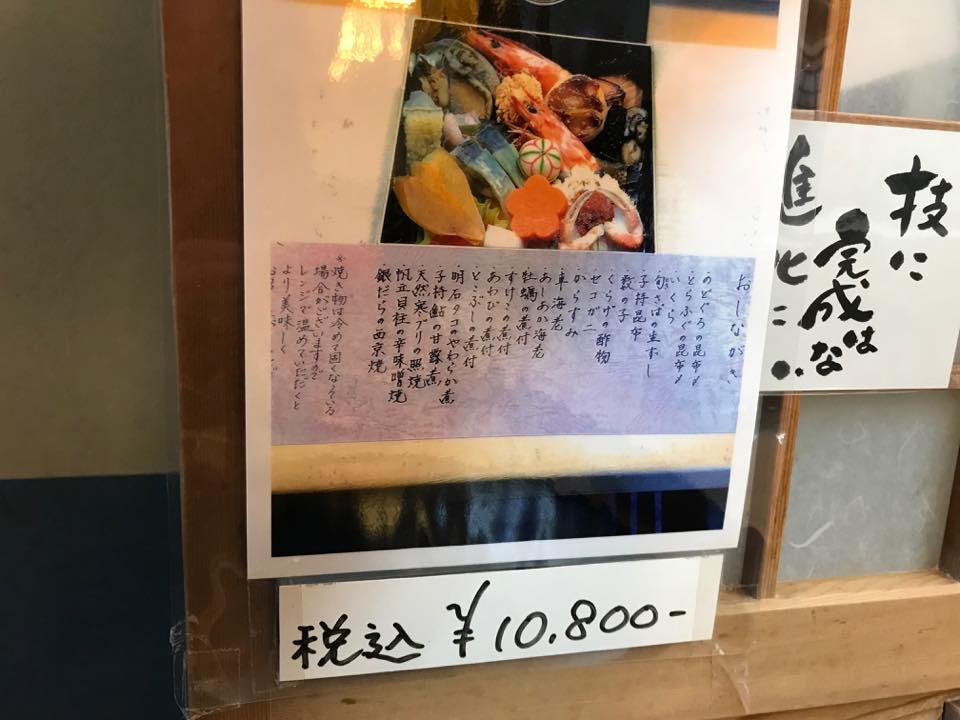 おしながき
・のどぐろの昆布〆
・とらふぐの昆布〆
・いくら
・旬さばの生すし
・子持昆布
・数の子
・くらげの酢物
・セコガニ
・からすみ
・車海老
・あしあか海老
・牡蠣の煮付
・すけこの煮付
・あわびの煮付
・とこぶしの煮付
・明石タコのやわらか煮
・子持鮎の甘露煮
・天然寒ブリの照焼
・帆立貝柱の辛味噌焼
・銀だらの西京焼
※焼き物は冷めて固くなっている
場合がございますので
レンジで温めていただくと
より美味しく
技に
完成はな
進化に
税込 ¥10,800-